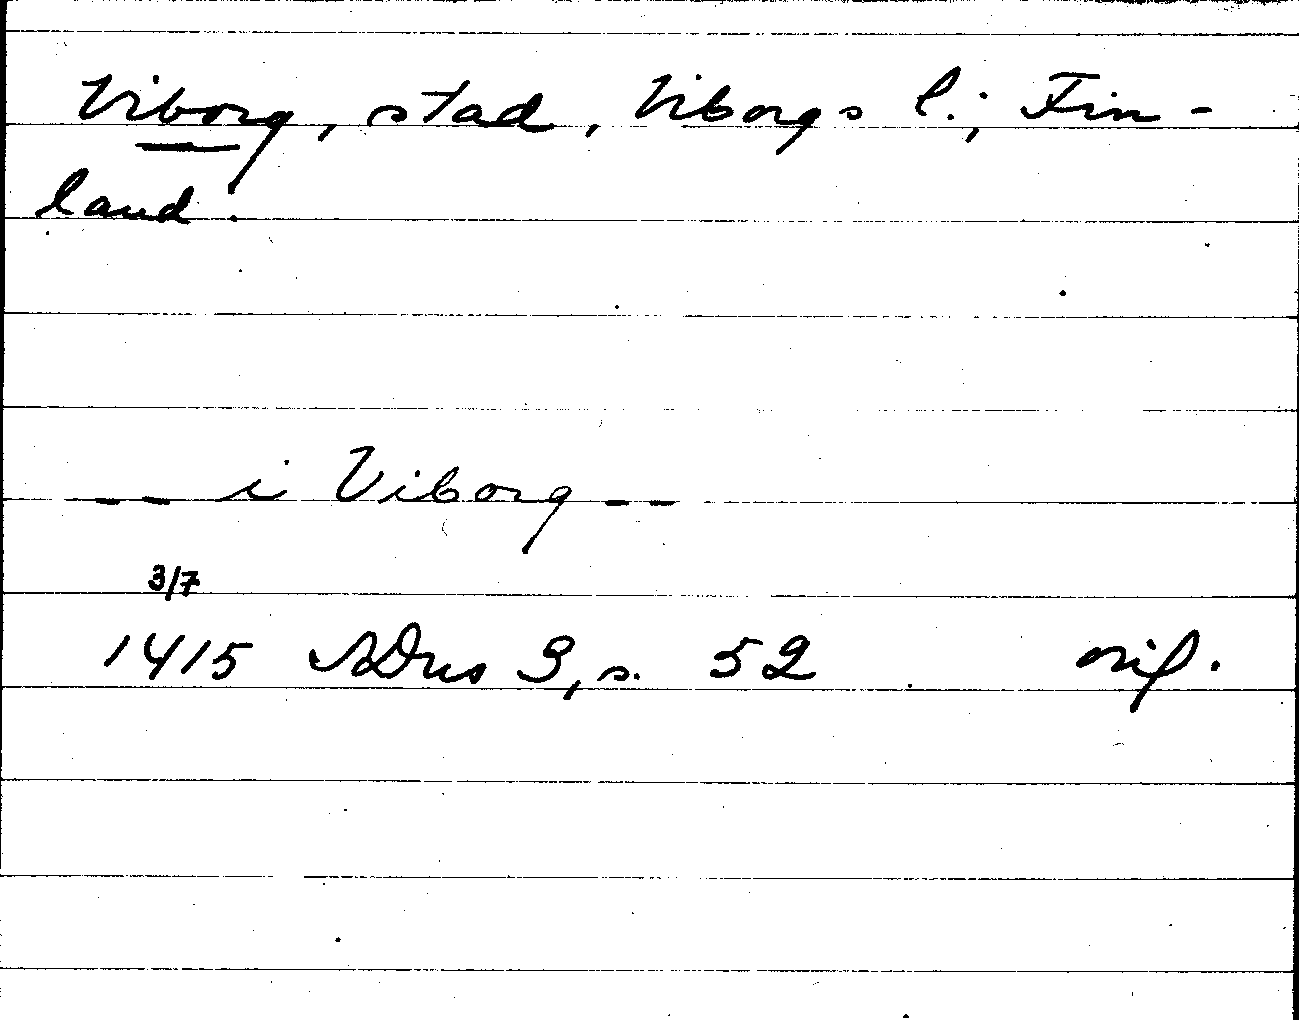 Viborg, stad, Viborgs l.; Fin-
land.
-- i Viborg --
3/7
1415 SDns 3, s. 52 orig.